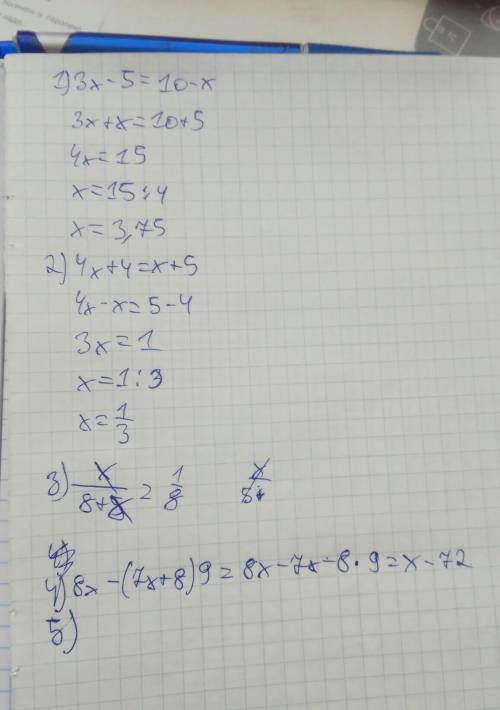 1) 3x - 5 = 10 - x
3x + x = 10 + 5
4x = 15
x = 15 : 4
x = 3,75
2) 4x + 4 = x + 5
4x - x = 5 - 4
3x = 1
x = 1 : 3
x = 1/3
3) x/(8+x) = 1/8
4) 8x - (7x + 8) 9 = 8x - 7x - 8 · 9 = x - 72
5)